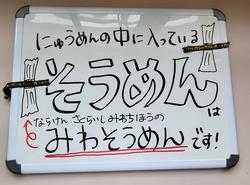 にゅうめんの中に入っている
そうめん
は
ならけん さくらいし みわちほうの
みわそうめんです!